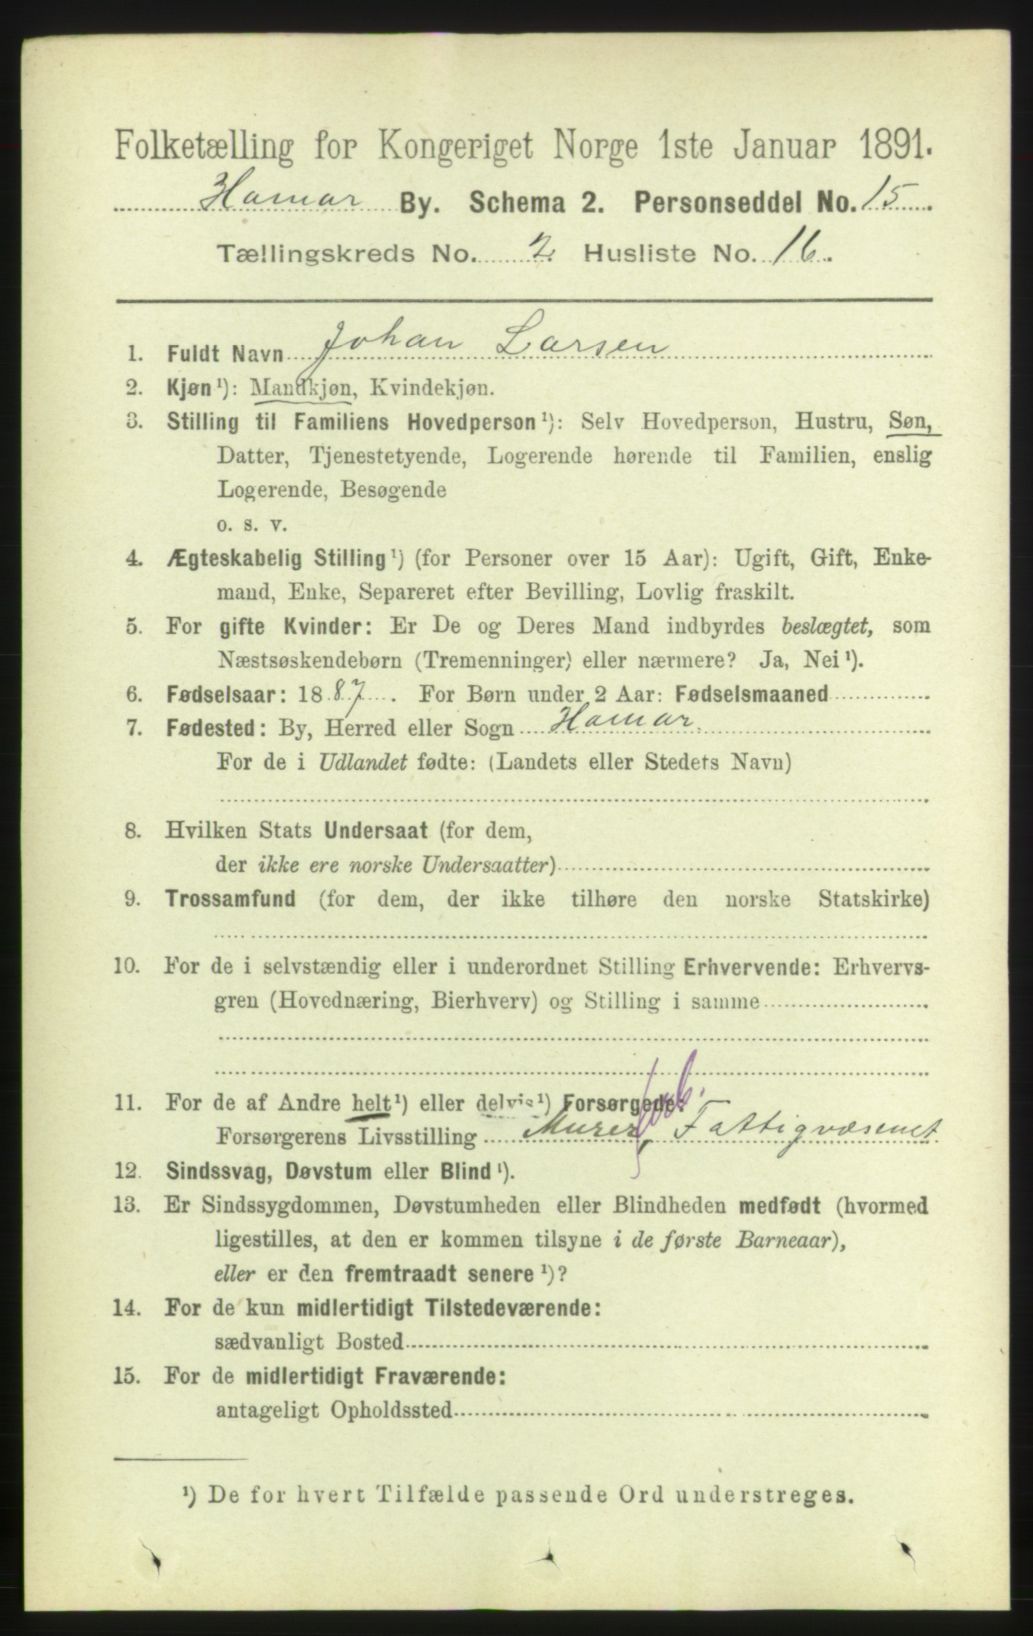 Folketælling for Kongeriget Norge 1ste Januar 1891.
Hamar By. Schema 2. Personseddel No. 15
Tællingskreds No. 2 Husliste No. 16.
1. Fuldt Navn Johan Larsen
2. Kjøn ¹): Mandkjøn, Kvindekjøn.
3. Stilling til Familiens Hovedperson ¹): Selv Hovedperson, Hustru, Søn,
Datter, Tjenestetyende, Logerende hørende til Familien, enslig
Logerende, Besøgende
o. s. v.
4. Ægteskabelig Stilling ¹) (for Personer over 15 Aar): Ugift, Gift, Enke-
mand, Enke, Separeret efter Bevilling, Lovlig fraskilt.
5. For gifte Kvinder: Er De og Deres Mand indbyrdes beslægtet, som
Næstsøskendebørn (Tremenninger) eller nærmere? Ja, Nei ¹).
6. Fødselsaar: 1887. For Børn under 2 Aar: Fødselsmaaned
7. Fødested: By, Herred eller Sogn Hamar
For de i Udlandet fødte: (Landets eller Stedets Navn)
8. Hvilken Stats Undersaat (for dem,
der ikke ere norske Undersaatter)
9. Trossamfund (for dem, der ikke tilhøre den norske Statskirke)
10. For de i selvstændig eller i underordnet Stilling Erhvervende: Erhvervs-
gren (Hovednæring, Bierhverv) og Stilling i samme
11. For de af Andre helt ¹) eller delvis ¹) Forsørgede:
Forsørgerens Livsstilling Murer, Fattigvæsenet
12. Sindssvag, Døvstum eller Blind ¹).
13. Er Sindssygdommen, Døvstumheden eller Blindheden medfødt (hvormed
ligestilles, at den er kommen tilsyne i de første Barneaar),
eller er den fremtraadt senere ¹)?
14. For de kun midlertidigt Tilstedeværende:
sædvanligt Bosted
15. For de midlertidigt Fraværende:
antageligt Opholdssted
¹) De for hvert Tilfælde passende Ord understreges.